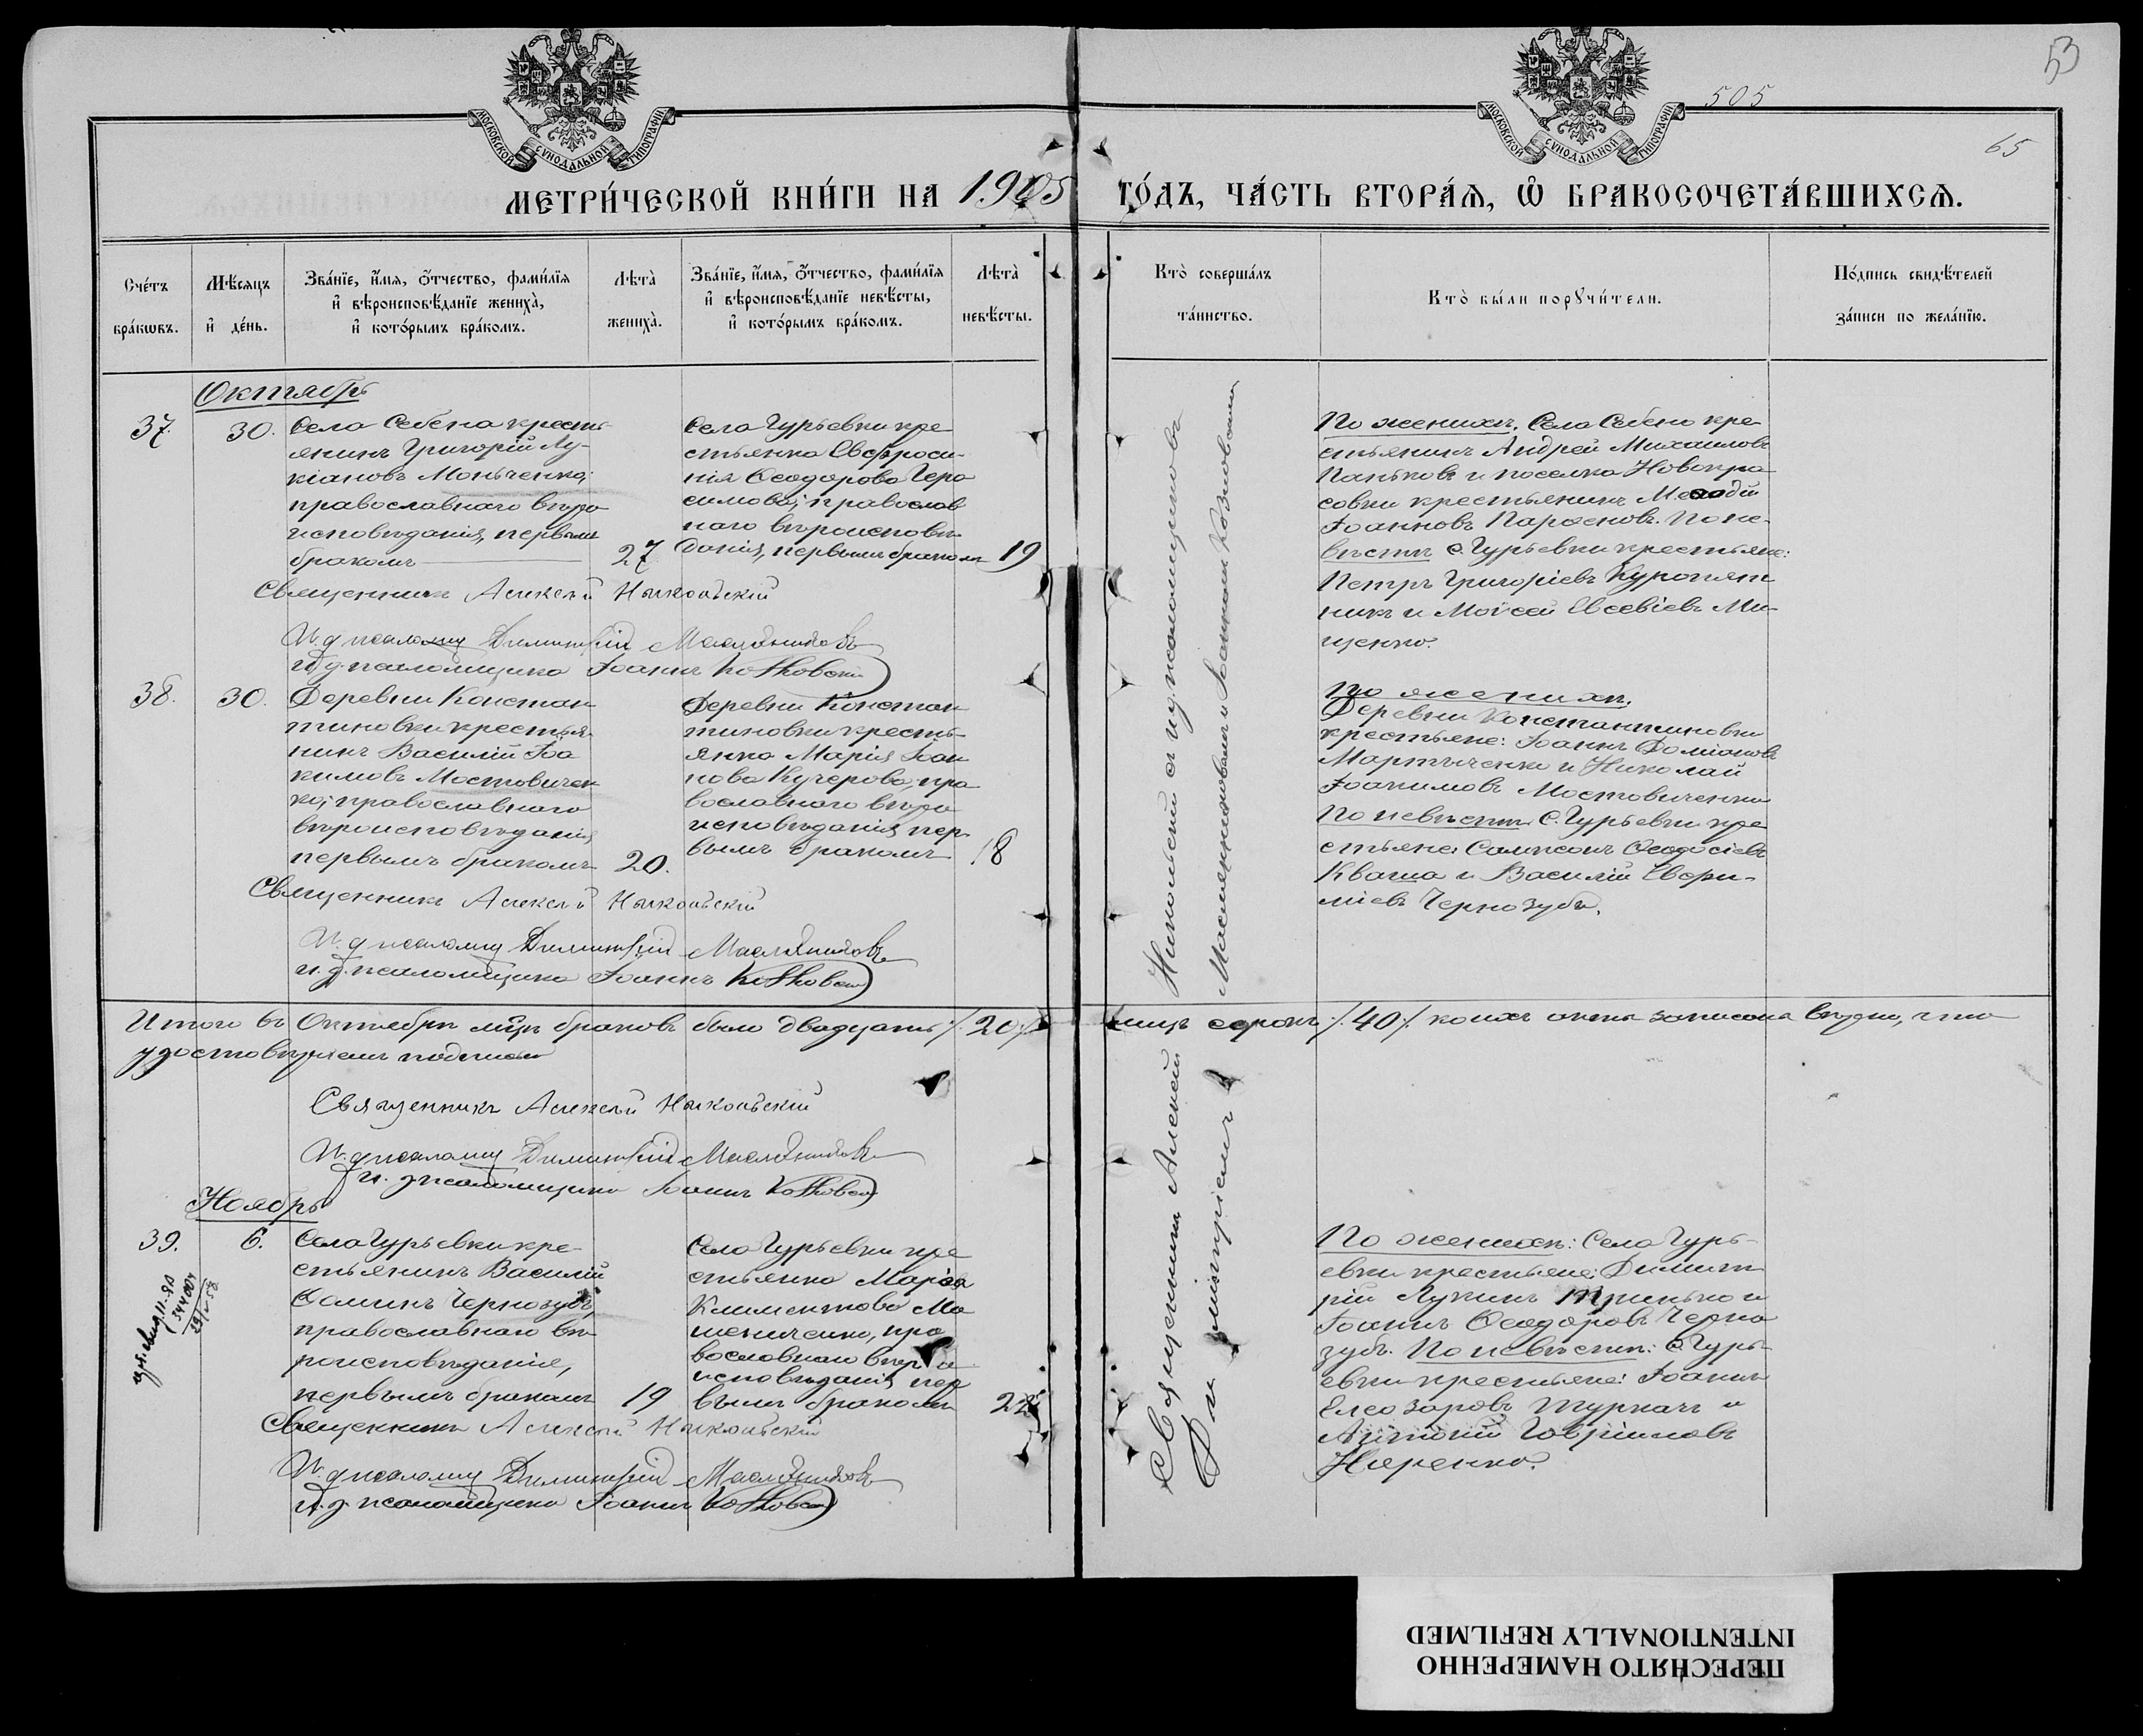 МОСКОВСКОЙ СѴНОДАЛЬНОЙ ТИПОГРАФІИ
МОСКОВСКОЙ СѴНОДАЛЬНОЙ ТИПОГРАФІИ
53
505
65
МЕТРИ́ЧЕСКОЙ КНИ́ГИ НА 1905
ГО́ДЪ, ЧА́СТЬ ВТОРА́Ѧ, Ѽ БРАКОСОЧЕТА́ВШИХСѦ.
Сче́тъ бра́кѡвъ.
Мѣ́сѧцъ и҆ де́нь.
Зва́нїе, и҆́мѧ, ѻ҆́тчество, фами́лїѧ
и҆ вѣроисповѣ́данїе жениха̀,
и҆ кото́рымъ бра́комъ.
Лѣта̀ жениха̀.
Зва́нїе, и҆́мѧ, ѻ҆́тчество, фами́лїѧ
и҆ вѣроисповѣ́данїе невѣ́сты,
и҆ кото́рымъ бра́комъ.
Лѣта̀ невѣ́сты.
Кто̀ соверша́лъ
та́инство.
Кто̀ бы́ли порꙋчи́тели.
По́дпись свидѣ́телей
за́писи по жела́нїю.
Октябрь
37.
30.
Села Себена кресть
янинъ Григорій Лу-
кіановъ Моньченко;
православнаго вѣро
исповѣданія, первымъ
бракомъ
27
Села Гурьевки кре
стьянка Евфроси-
нія Ѳеодорова Гера
симова; православ
наго вѣроисповѣ
данія, первымъ бракомъ
19
По женихѣ. Села Себено кре
стьянинъ Андрей Михаиловъ
Паньковъ и поселка Новокра
совки крестьянинъ
Іоанновъ. По не-
вѣстѣ с. Гурьевки крестьяне:
Петръ Григоріевъ Куропят
никъ и Моисей Евсевіевъ Ми-
щенко.
Священникъ Алексѣй Никольскій
И. д. псаломщ Димитрій Масляниковъ
И. д. псаломщика Іоаннъ
38.
30.
Деревни Констан
тиновки крестья
нинъ Василій Іоа
кимовъ Мостовичен
ко; православнаго
вѣроисповѣданія
первымъ бракомъ
20.
Деревни Констан
тиновки кресть-
янка Марія Іоан
нова Кучерова, пра
вославнаго вѣро
исповѣданія пер
вымъ бракомъ
18
По женихѣ.
Деревни Константиновки
крестьяне: Іоаннъ Доміановъ
Мартыченко и Николай
Іоакимовъ Мостовиченко
По невѣстѣ С. Гурьевки кре
стьяне: Сампсонъ Ѳеодосіевъ
Кваша и Василій Евфи-
міевъ Чернозубъ.
Священникъ Алексѣй Никольскій
И. д. псаломщ Димитрій Масляниковъ
и. д. псаломщика Іоаннъ
Итого въ Октябрѣ мцѣ браковъ было двадцать /. 20 /.
лицъ сорокъ /. 40 /. коихъ акты записаны вѣрно, что
удостовѣряемъ подписью
Священникъ Алексѣй Никольскій
И. д. псаломщ Димитрій Масляниковъ
и. д. псаломщика Іоаннъ
Священникъ Алексѣй Никольскій съ и. д. псаломщиковъ
Димитріемъ Масленниковымъ и Іоанномъ
Ноябрь
39.
6.
Села Гурьевки кре-
стьянинъ Василій
Ѳоминъ Чернозубъ,
православнаго вѣ
роисповѣданія,
первымъ бракомъ
19
Села Гурьевки кре
стьянка Марѳа
Климентова Ма
шениченко, пра
вославнаго вѣро
исповѣданія пер
вымъ бракомъ
22
По женихѣ: Села Гурь-
евки крестьяне: Димит
рій Лукинъ Тринько и
Іоаннъ Ѳеодоровъ Черно
зубъ. По невѣстѣ: с. Гурь-
евки крестьяне: Іоаннъ
Елеазаровъ Туркачъ и
Антоній Гавріиловъ
Ниренко.
Священникъ Алексѣй Никольскій
И. д. псаломщ Димитрій Масляниковъ
И. д. псаломщика Іоаннъ
ПЕРЕСНЯТО НАМЕРЕННО
INTENTIONALLY REFILMED